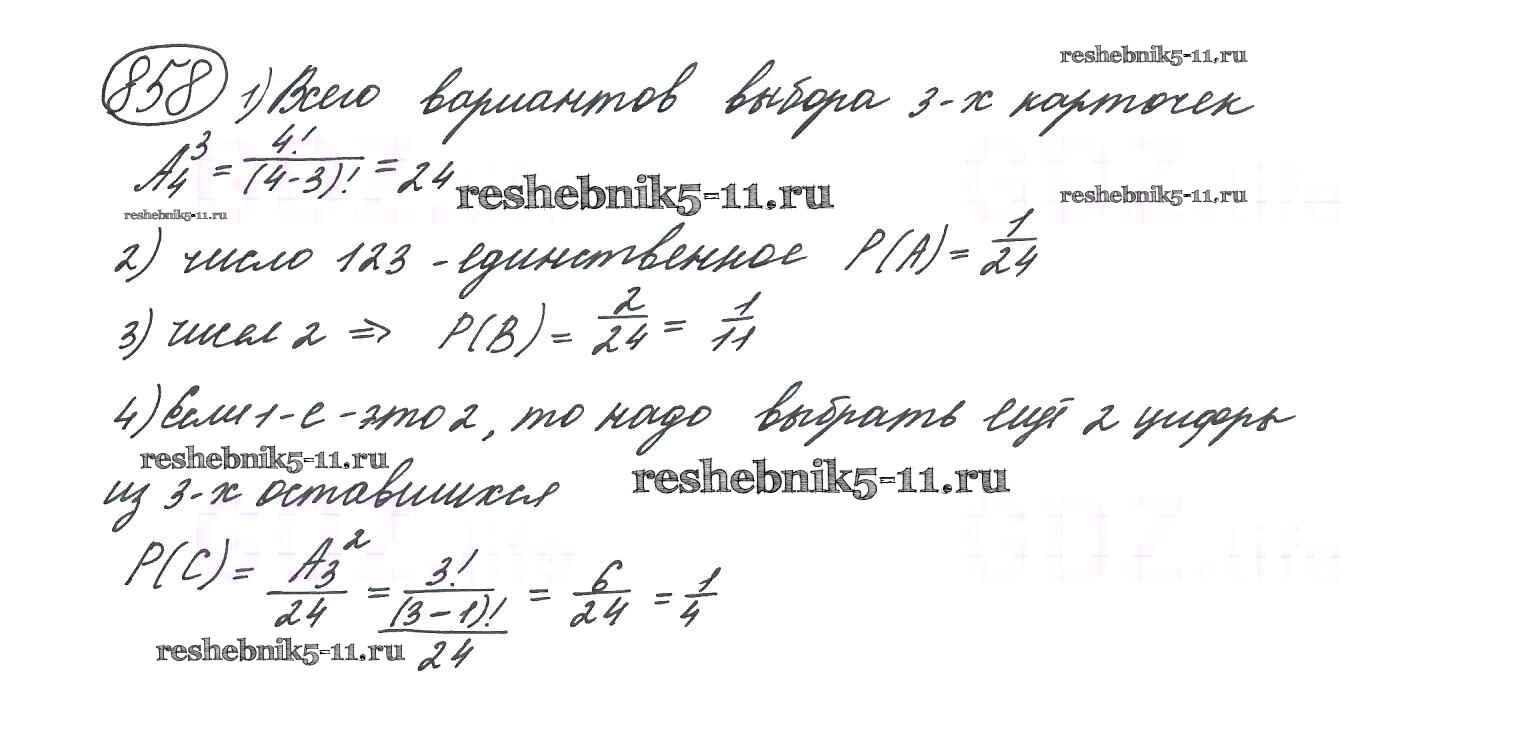 reshebnik5-11.ru
858 1) Всего вариантов выбора 3-х карточек
A₄³ = 4!/(4-3)! = 24
reshebnik5-11.ru
reshebnik5-11.ru
reshebnik5-11.ru
2) число 123 - единственное P(A) = 1/24
3) чисел 2 => P(B) = 2/24 = 1/11
4) Если 1-е - это 2, то надо выбрать ещё 2 цифры
reshebnik5-11.ru
reshebnik5-11.ru
из 3-х оставшихся
GDZ.life
GDZ.life
P(C) = A₃²/24 = (3!/(3-1)!)/24 = 6/24 = 1/4
reshebnik5-11.ru